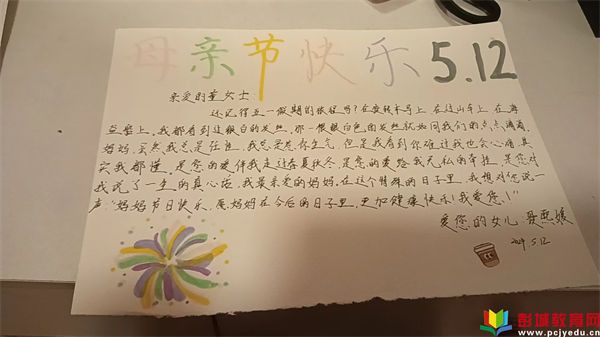 母亲节快乐5.12
亲爱的董女士:
还记得五一假期的旅程吗?在旋转木马上,在过山车上,在海
盗船上,我都看到这银白的发丝,那一根根白色的发丝就如同我们的点点滴滴。
妈妈,虽然我总是任性,我总是惹你生气,但是我看到你难过我也会心痛,其
实我都懂,是您的爱伴我走过春夏秋冬,是您的爱给我无私的牵挂,是您对
我说了一生的真心话,我最亲爱的妈妈,在这个特殊的日子里,我想对您说一
声:“妈妈节日快乐,愿妈妈在今后的日子里,更加健康快乐!我爱您!”
爱您的女儿
5.12
彭城教育网
www.pcjyedu.cn